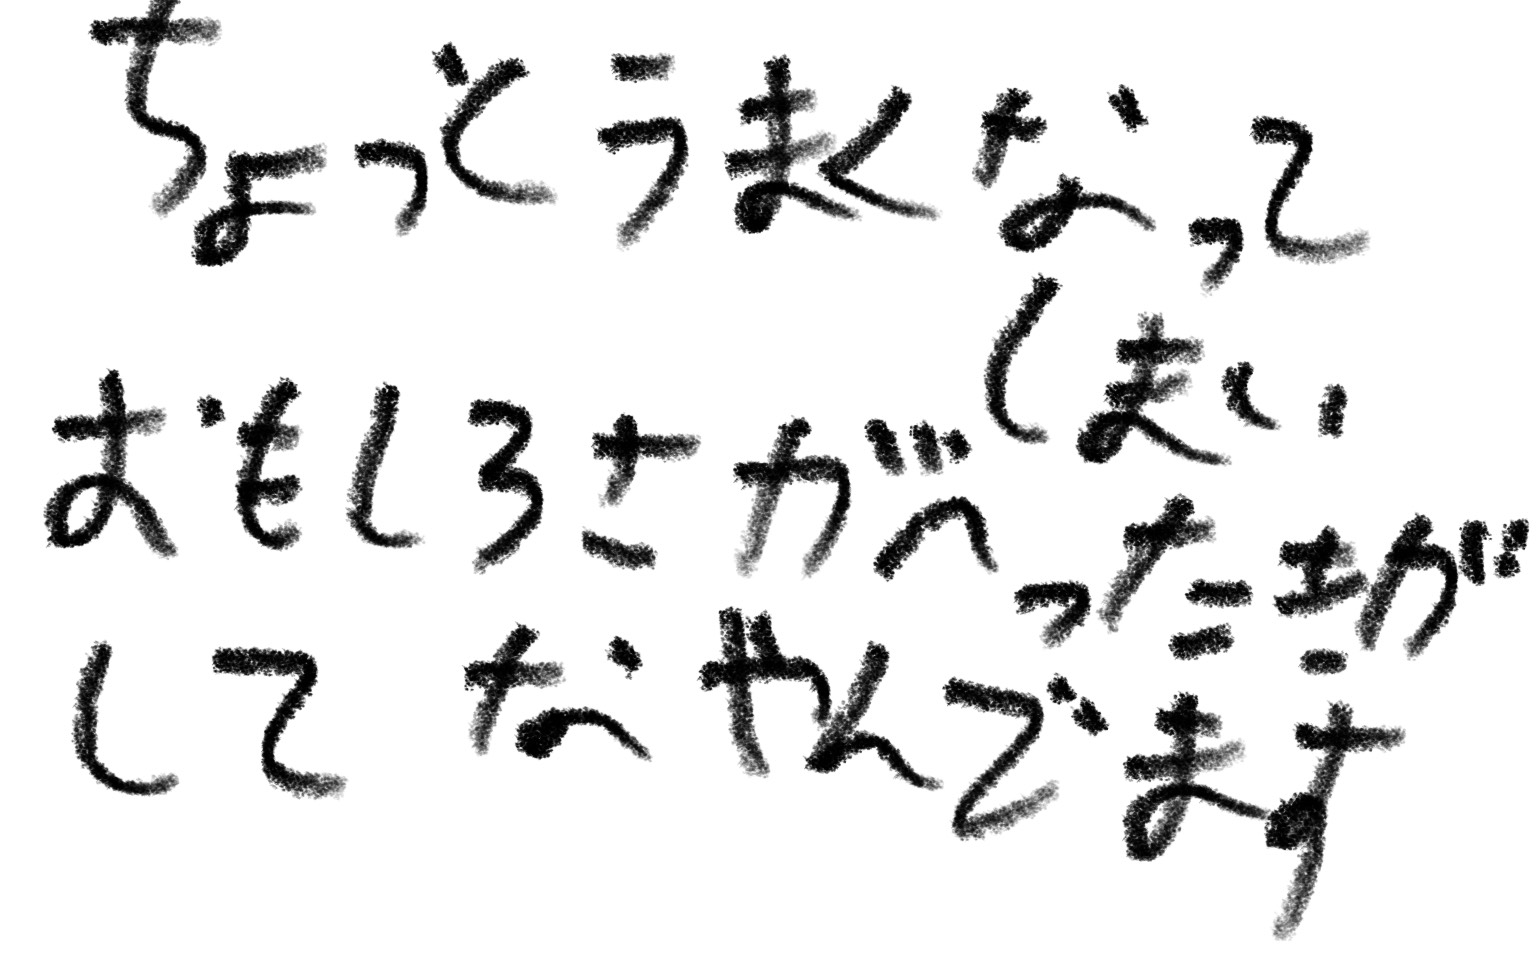 ちょっとうまくなって
しまい
おもしろさがへったきが
してなやんでます